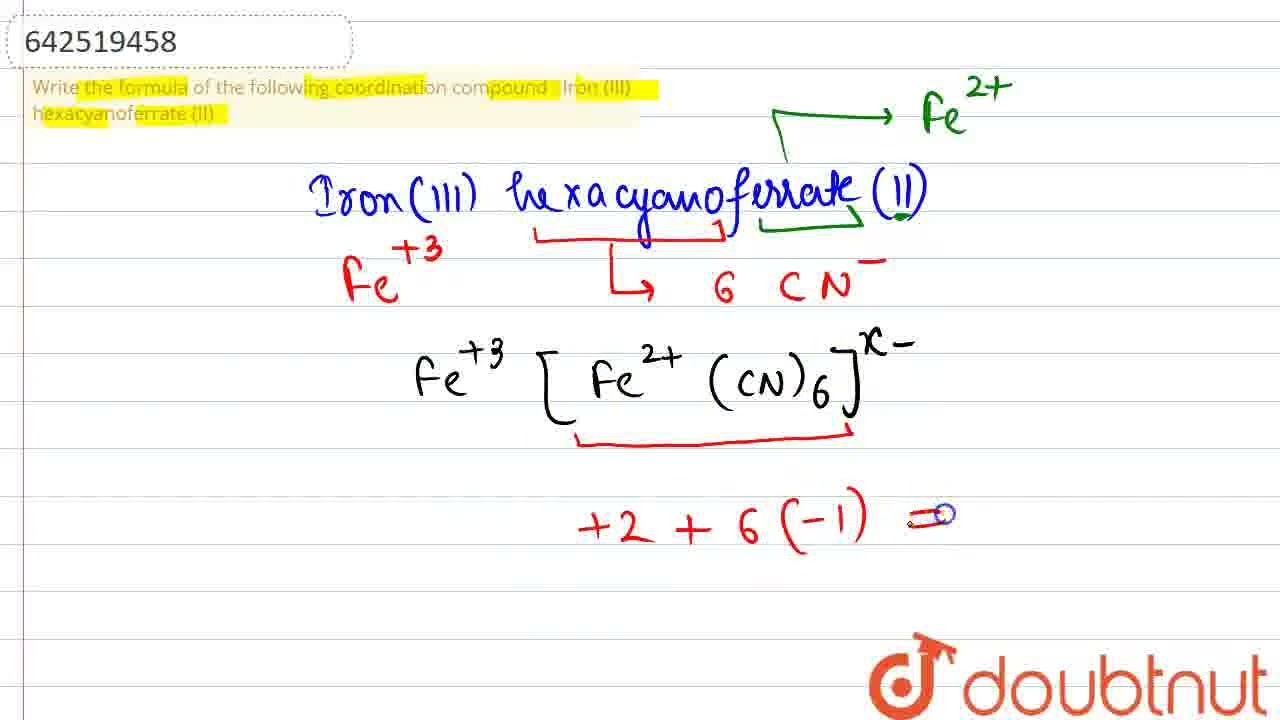 642519458
Write the formula of the following coordination compound Iron (III)
hexacyanoferrate (II)
Fe²⁺
Iron (III) hexacyanoferrate (II)
Fe⁺³
6 CN⁻
Fe⁺³ [Fe²⁺ (CN)₆]ˣ⁻
+2 + 6 (-1) =
doubtnut